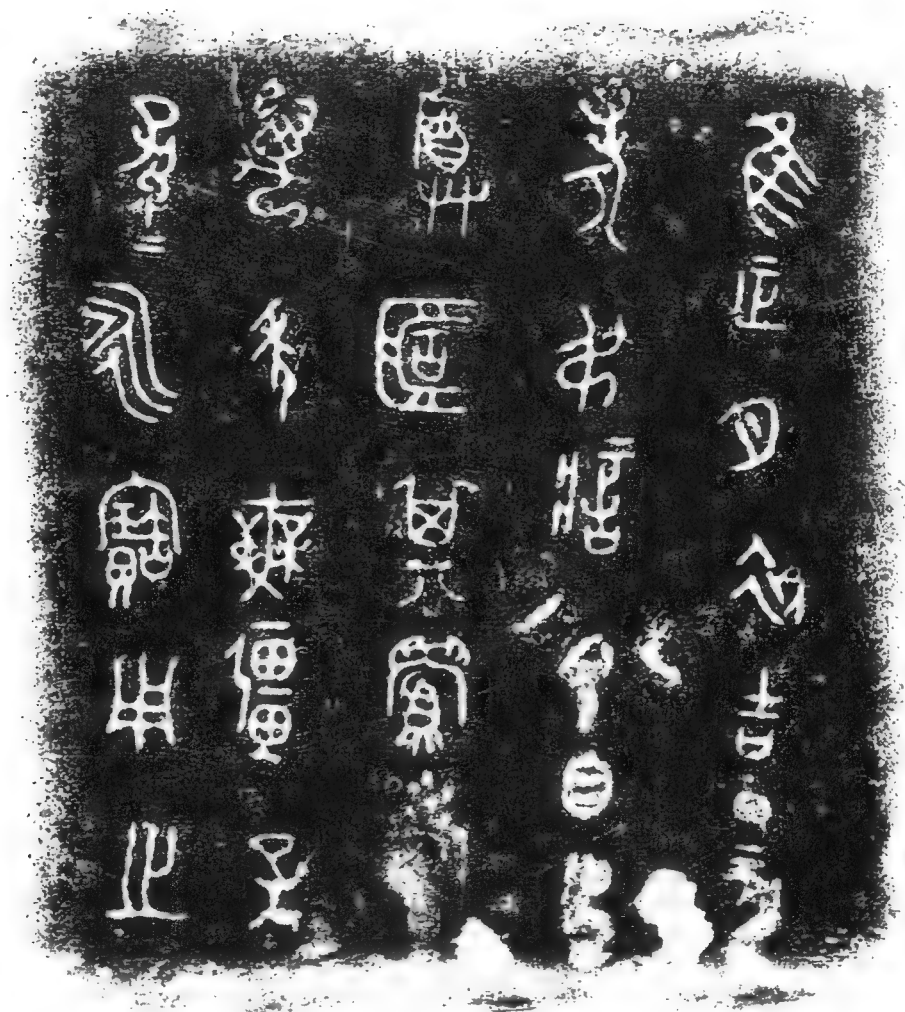 隹正月初吉丁亥
考弔父自乍
尊其眉壽
萬年無疆子
孫＝永寶用之